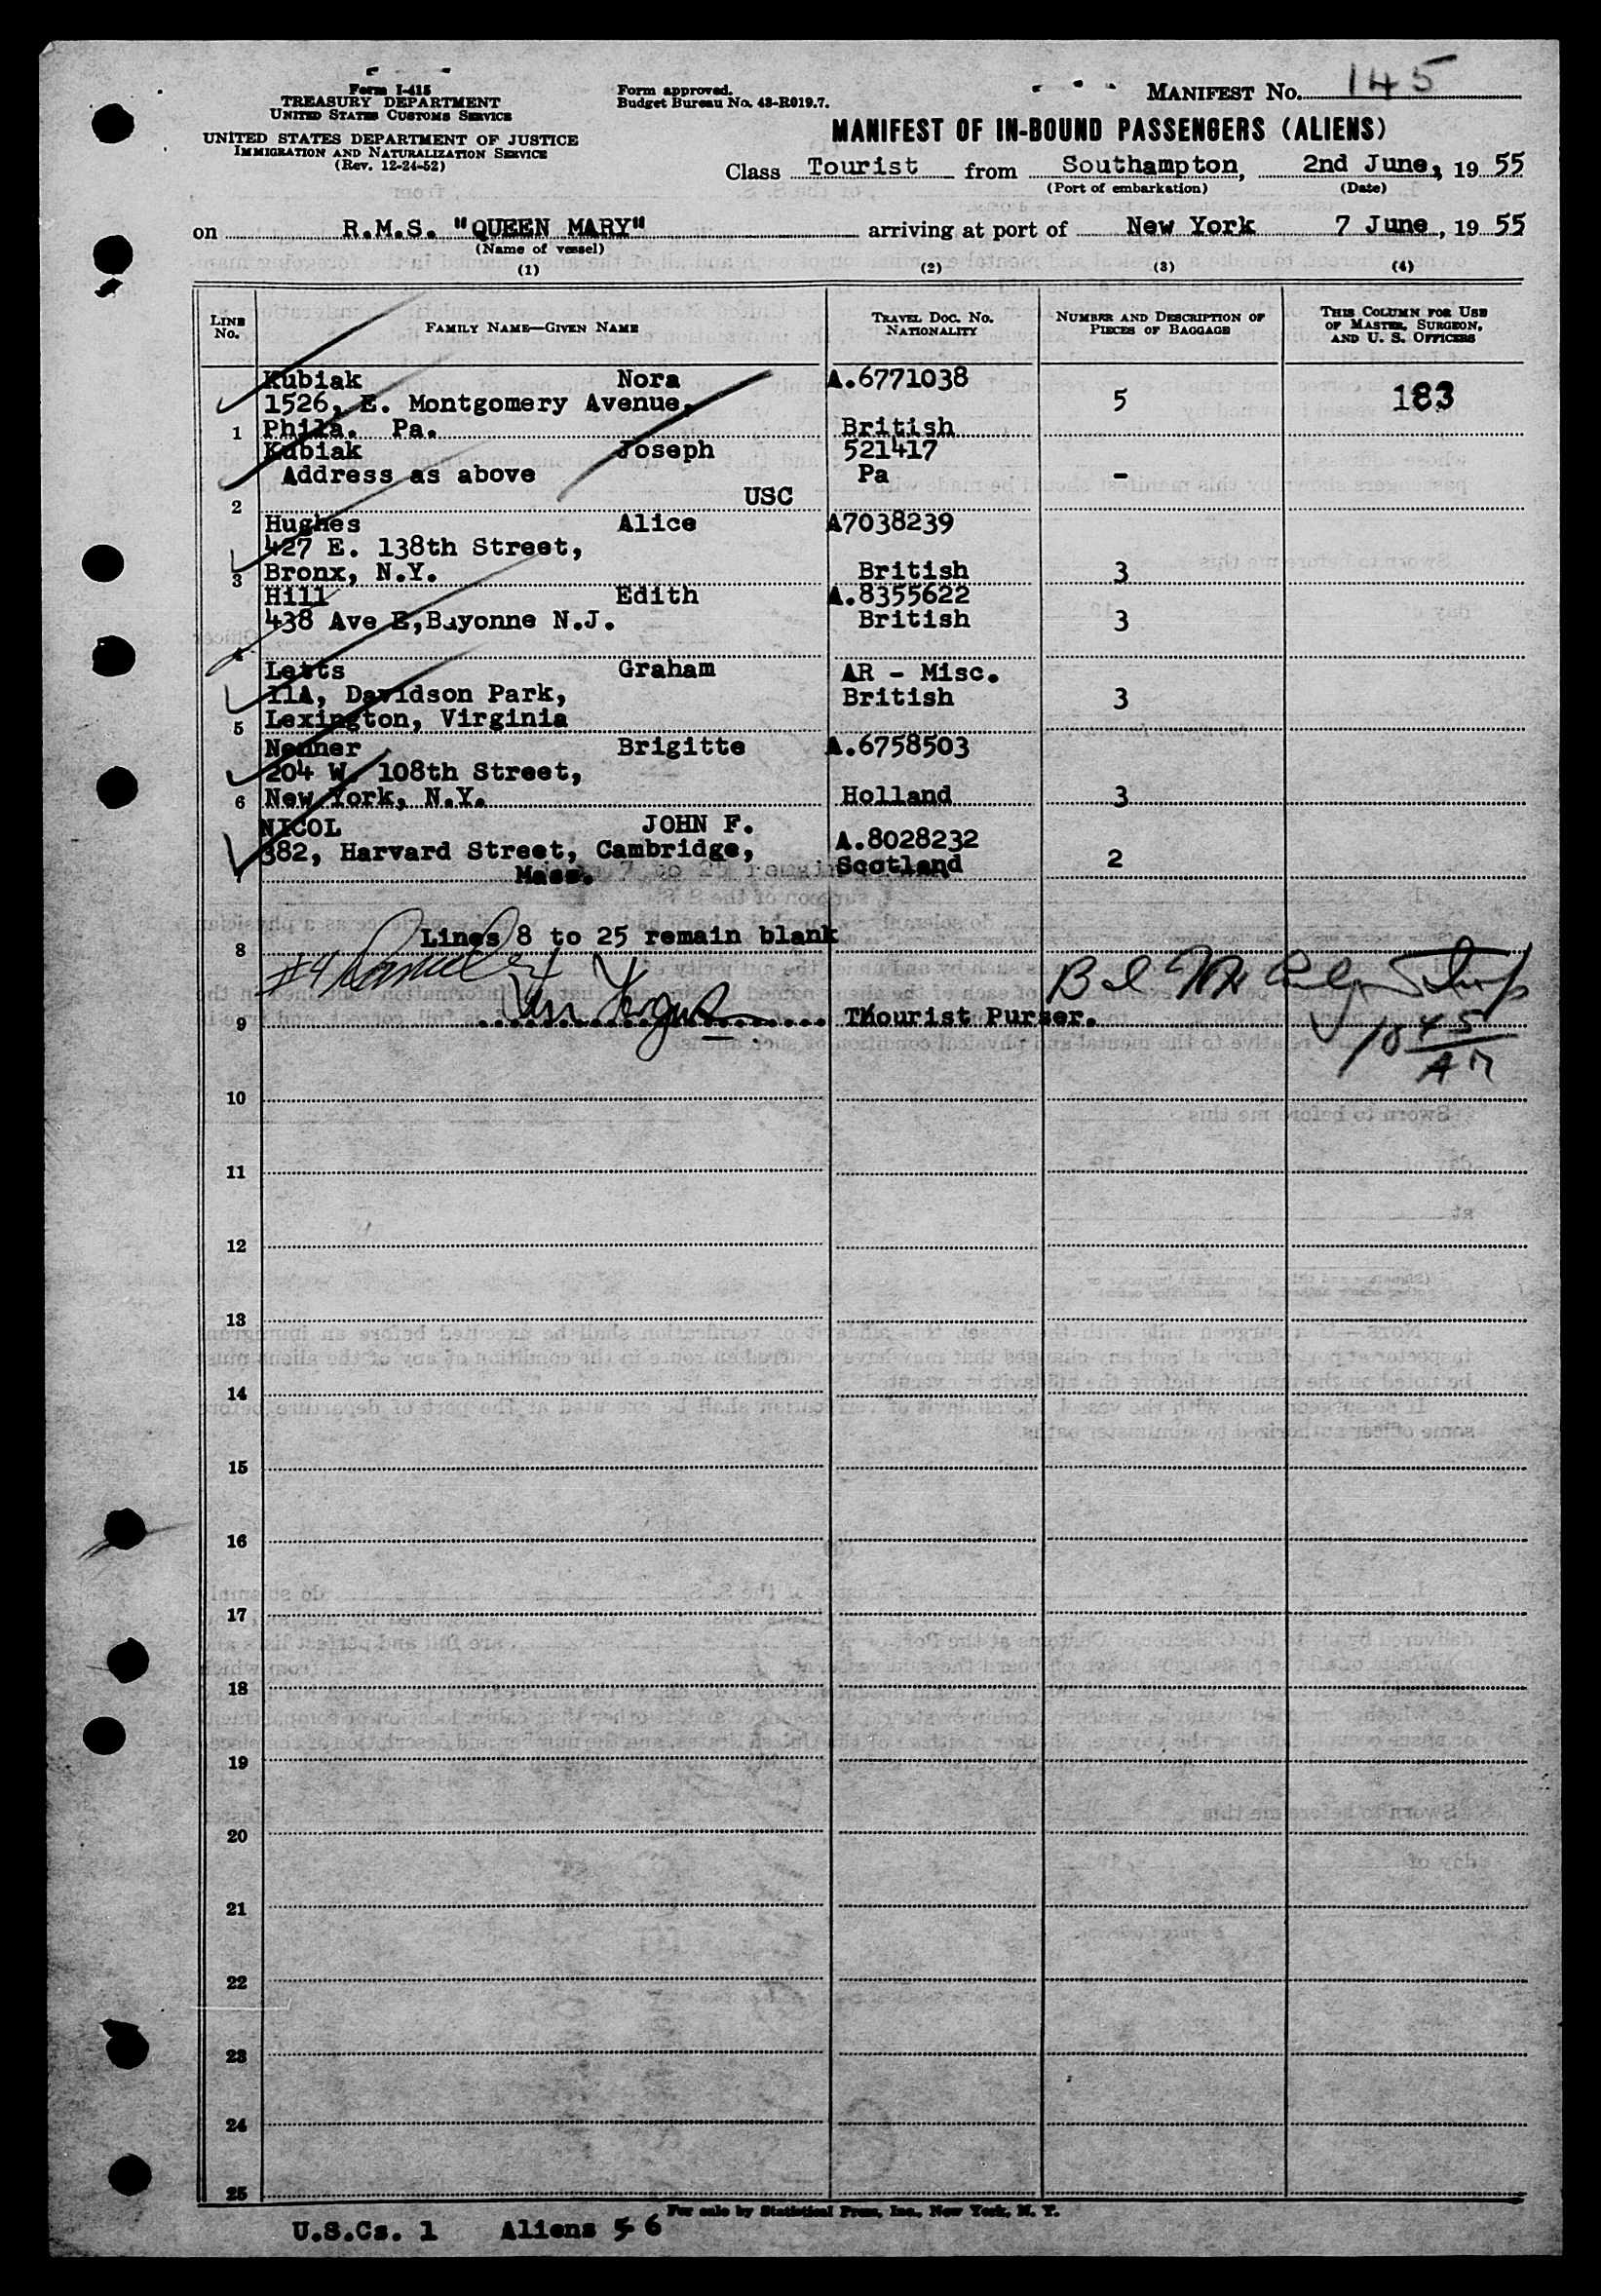 Form I-415
TREASURY DEPARTMENT
UNITED STATES CUSTOMS SERVICE
UNITED STATES DEPARTMENT OF JUSTICE
IMMIGRATION AND NATURALIZATION SERVICE
(Rev. 12-24-52)
Form approved.
Budget Bureau No. 43-R019.7.
MANIFEST NO. 145
MANIFEST OF IN-BOUND PASSENGERS (ALIENS)
Class Tourist from Southampton, 2nd June, 1955
(Port of embarkation) (Date)
on R.M.S. "QUEEN MARY" arriving at port of New York 7 June, 1955
(Name of vessel)
(1) (2) (3) (4)
LINE No. FAMILY NAME—GIVEN NAME TRAVEL DOC. NO. NATIONALITY NUMBER AND DESCRIPTION OF PIECES OF BAGGAGE THIS COLUMN FOR USE OF MASTER, SURGEON, AND U. S. OFFICERS
Kubiak Nora A.6771038
1526, E. Montgomery Avenue, 5 183
1 Phila. Pa. British
Kubiak Joseph 521417
Address as above Pa -
2 USC
Hughes Alice A7038239
427 E. 138th Street,
3 Bronx, N.Y. British 3
Hill Edith A.8355622
438 Ave E,Bayonne N.J. British 3
4
Letts Graham AR - Misc.
11A, Davidson Park, British 3
5 Lexington, Virginia
Nenner Brigitte A.6758503
204 W. 108th Street,
6 New York, N.Y. Holland 3
NICOL JOHN F. A.8028232
382, Harvard Street, Cambridge, Scotland 2
7 Mass.
8 Lines 8 to 25 remain blank
#4
9 Thourist Purser.
10 45
AM
10
11
12
13
14
15
16
17
18
19
20
21
22
23
24
25
For sale by Statistical Press, Inc., New York, N. Y.
U.S.Cs. 1 Aliens 5 6